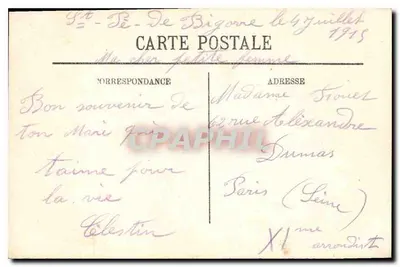 St-Pé-De Bigorre le 4 Juillet
1915
CARTE POSTALE
Ma cher petite femme
CORRESPONDANCE
ADRESSE
Bon souvenir de
ton Mari qui
t'aime pour
la vie
Célestin
Madame
62 rue Aléxandre
Dumas
Paris (Seine)
XIme
arrondist
CPAPHIL